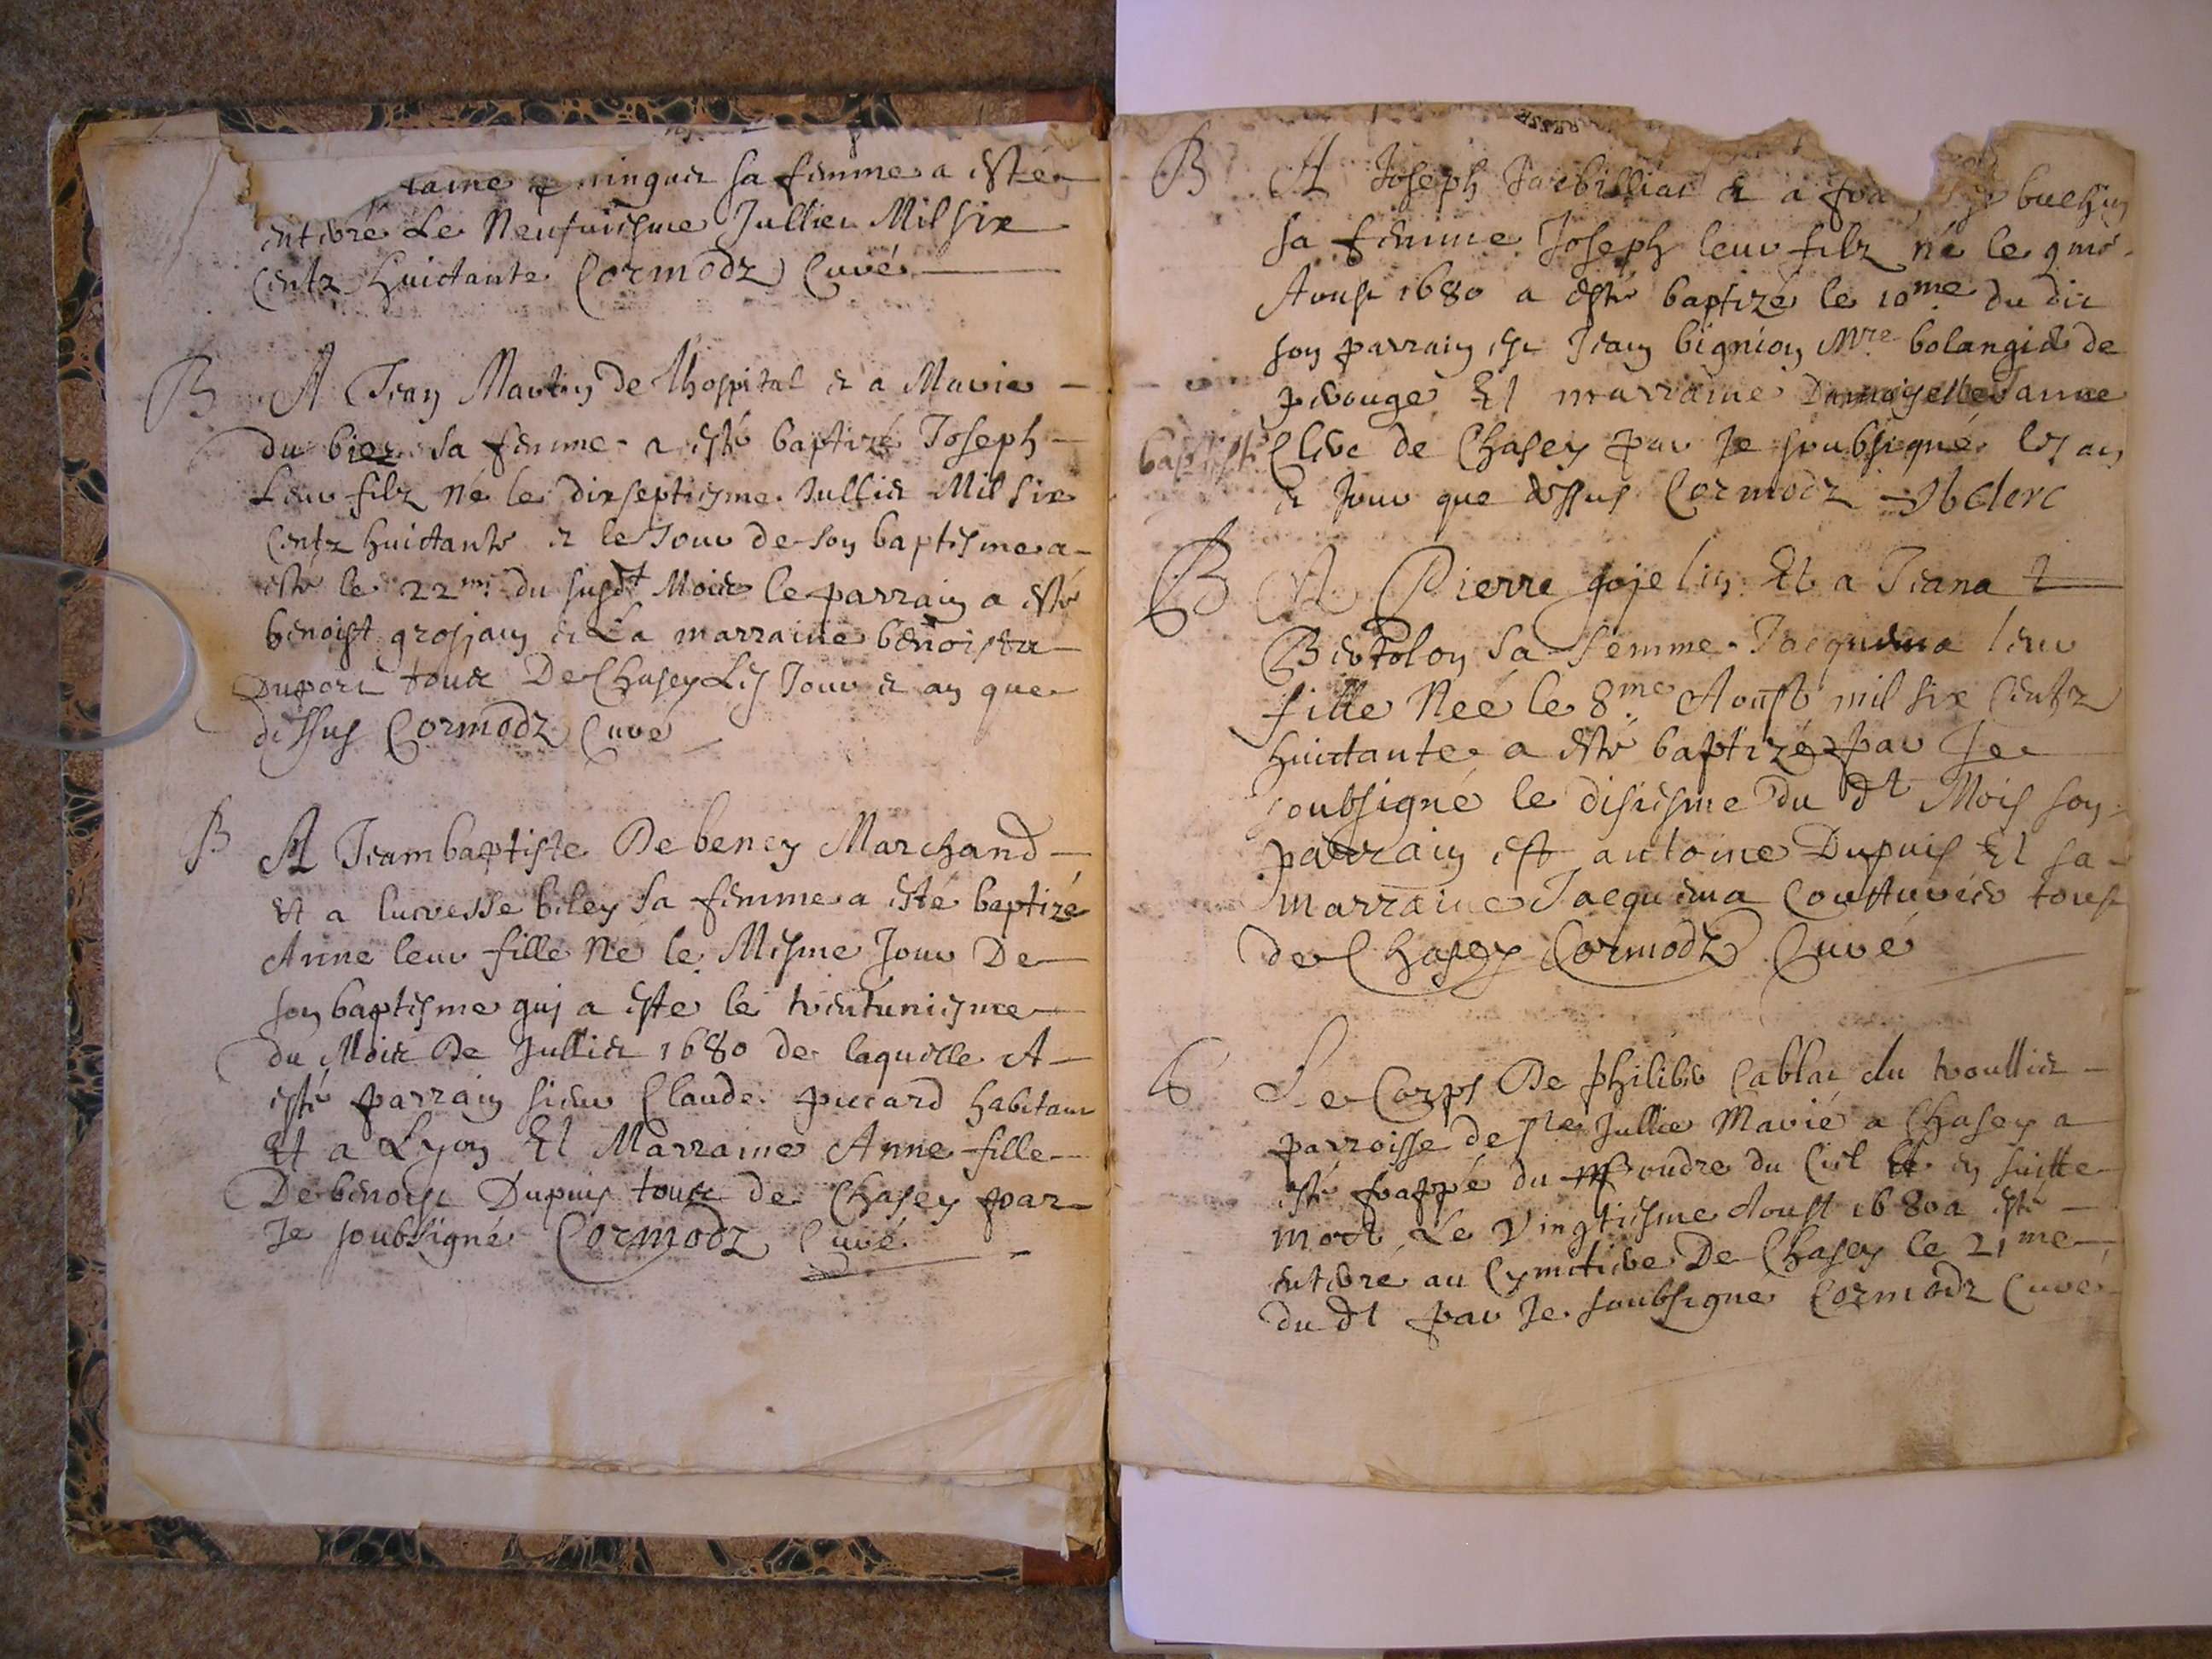 sa femme a esté
enterré Le Neufuiesme Jullien Mil six
Centz huictante Cormodz Curé
B A Jean Martin de lhospital et a Marie
du bier sa femme a esté baptizé Joseph
Leur filz né le dixseptiesme Jullier Mil six
Centz huictante et le Jour de son baptesme a
esté le 22me du susdt Mois le parrain a esté
benoist grosjan et La marraine benoista
Duport tous De Chasey Les Jour et an que
dessus Cormodz Curé
B A Jeambaptiste Debeney Marchand
Et a lucresse biley sa femme a esté baptizé
Anne leur fille Né le Mesme Jour De
son baptesme qui a esté le trentuniesme
du Mois De Jullier 1680 de laquelle A
esté parrain sieur Claude picard habitant
Et a Lyon Et Marraine Anne fille
De benoist Dupuis tous de Chasey par
Je soubsigné Cormodz Curé
B A Joseph et a
sa femme Joseph leur filz né le
Aoust 1680 a esté baptizé le 10me du dit
son parrain est Jean bignion Mre bolangier de
perouge Et marraine Damoyselle Janne
Clerc de Chasey par Je soubsigné les an
et Jour que dessus Cormodz Clerc
B A Pierre gojelin Et a Jeana
Bertolon sa femme Jaquema leur
fille Neé le 8me Aoust mil six Centz
huictante a esté baptizé par Je
soubsigné le disiesme du dt Mois son
parrain est antoine Dupuis Et sa
marraine Jaquema Cousturier tous
de Chasey Cormodz Curé
Le Corps De philiber Cablat du
parroisse de Ste Jullie Marié a Chasey a
esté frappé du foudre du Ciel et en suitte
mort Le Vingtiesme Aoust 1680 a esté
enterré au Cymetiere De Chasey le 21me
du dt par Je soubsigné Cormodz Curé